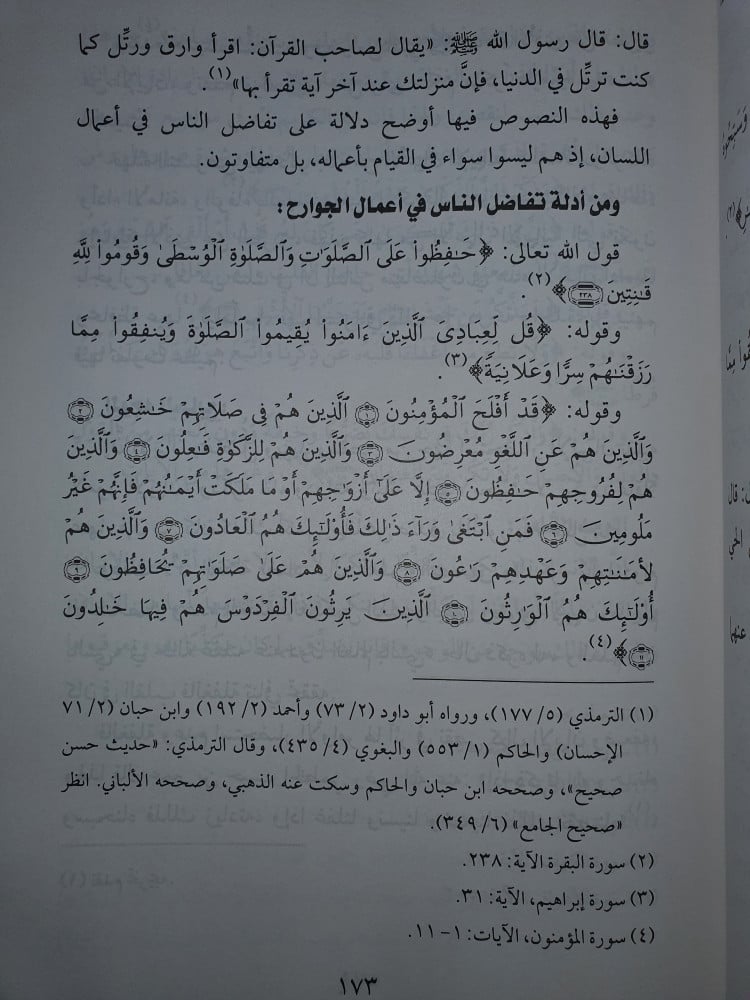 قال: قال رسول الله ﷺ: «يقال لصاحب القرآن: اقرأ وارق ورتِّل كما
كنت ترتِّل في الدنيا، فإنَّ منزلتك عند آخر آية تقرأ بها»(١).
فهذه النصوص فيها أوضح دلالة على تفاضل الناس في أعمال
اللسان، إذ هم ليسوا سواء في القيام بأعماله، بل متفاوتون.
ومن أدلة تفاضل الناس في أعمال الجوارح:
قول الله تعالى: ﴿حَـٰفِظُوا۟ عَلَى ٱلصَّلَوَٰتِ وَٱلصَّلَوٰةِ ٱلْوُسْطَىٰ وَقُومُوا۟ لِلَّهِ
قَـٰنِتِينَ ٢٣٨﴾(٢).
وقوله: ﴿قُل لِّعِبَادِىَ ٱلَّذِينَ ءَامَنُوا۟ يُقِيمُوا۟ ٱلصَّلَوٰةَ وَيُنفِقُوا۟ مِمَّا
رَزَقْنَـٰهُمْ سِرًّا وَعَلَانِيَةً﴾(٣).
وقوله: ﴿قَدْ أَفْلَحَ ٱلْمُؤْمِنُونَ ١ ٱلَّذِينَ هُمْ فِى صَلَاتِهِمْ خَـٰشِعُونَ ٢
وَٱلَّذِينَ هُمْ عَنِ ٱللَّغْوِ مُعْرِضُونَ ٣ وَٱلَّذِينَ هُمْ لِلزَّكَوٰةِ فَـٰعِلُونَ ٤ وَٱلَّذِينَ
هُمْ لِفُرُوجِهِمْ حَـٰفِظُونَ ٥ إِلَّا عَلَىٰٓ أَزْوَٰجِهِمْ أَوْ مَا مَلَكَتْ أَيْمَـٰنُهُمْ فَإِنَّهُمْ غَيْرُ
مَلُومِينَ ٦ فَمَنِ ٱبْتَغَىٰ وَرَآءَ ذَٰلِكَ فَأُو۟لَـٰٓئِكَ هُمُ ٱلْعَادُونَ ٧ وَٱلَّذِينَ هُمْ
لِأَمَـٰنَـٰتِهِمْ وَعَهْدِهِمْ رَٰعُونَ ٨ وَٱلَّذِينَ هُمْ عَلَىٰ صَلَوَٰتِهِمْ يُحَافِظُونَ ٩
أُو۟لَـٰٓئِكَ هُمُ ٱلْوَٰرِثُونَ ١٠ ٱلَّذِينَ يَرِثُونَ ٱلْفِرْدَوْسَ هُمْ فِيهَا خَـٰلِدُونَ
١١﴾(٤).
(١) الترمذي (٥/ ١٧٧)، ورواه أبو داود (٢/ ٧٣) وأحمد (٢/ ١٩٢) وابن حبان (٢/ ٧١
الإحسان) والحاكم (١/ ٥٥٣) والبغوي (٤/ ٤٣٥)، وقال الترمذي: «حديث حسن
صحيح»، وصححه ابن حبان والحاكم وسكت عنه الذهبي، وصححه الألباني. انظر
«صحيح الجامع» (٦/ ٣٤٩).
(٢) سورة البقرة الآية: ٢٣٨.
(٣) سورة إبراهيم، الآية: ٣١.
(٤) سورة المؤمنون، الآيات: ١- ١١.
١٧٣